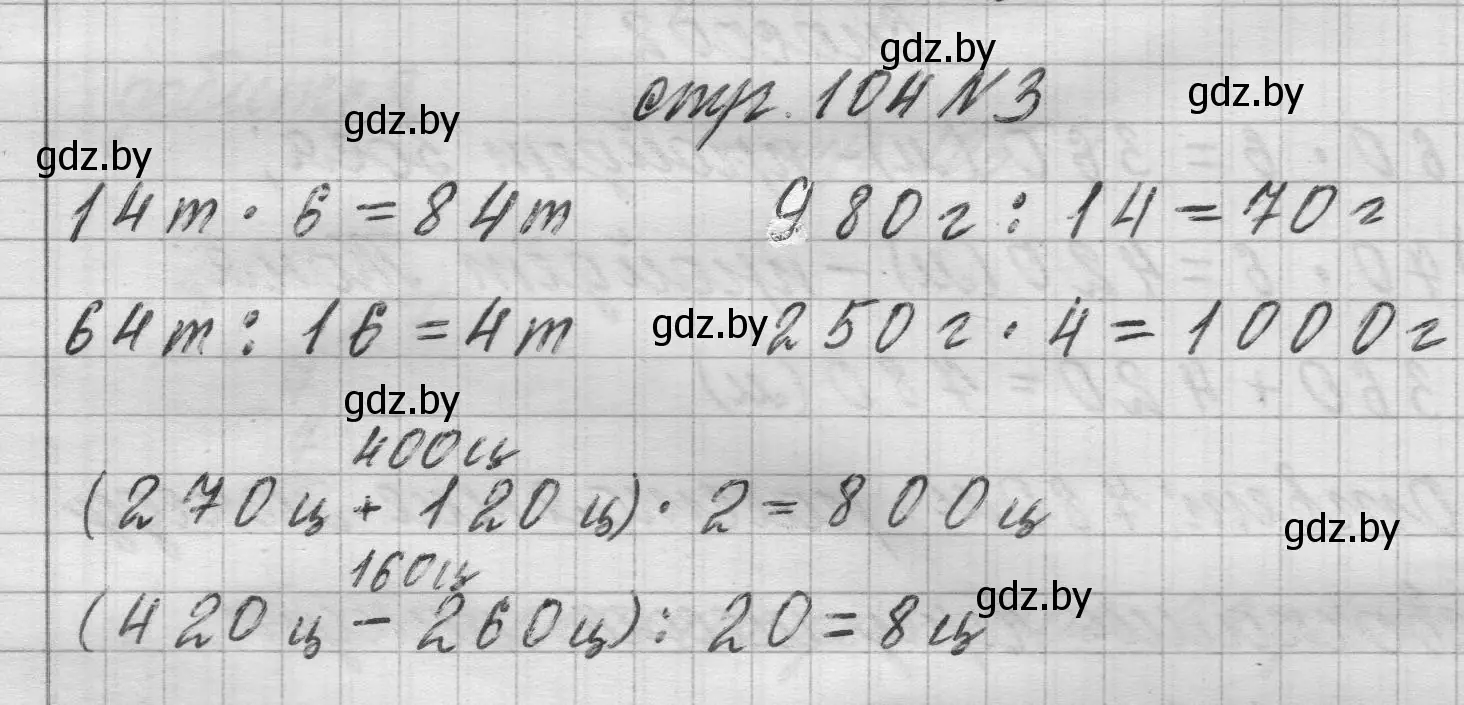 gdz.by
стр. 104 N 3
gdz.by
gdz.by
gdz.by
14т · 6 = 84т 980г : 14 = 70г
64т : 16 = 4т gdz.by 250г · 4 = 1000г
gdz.by
400ц
(270ц + 120ц) · 2 = 800ц
gdz.by
160ц
(420ц - 260ц) : 20 = 8ц
gdz.by